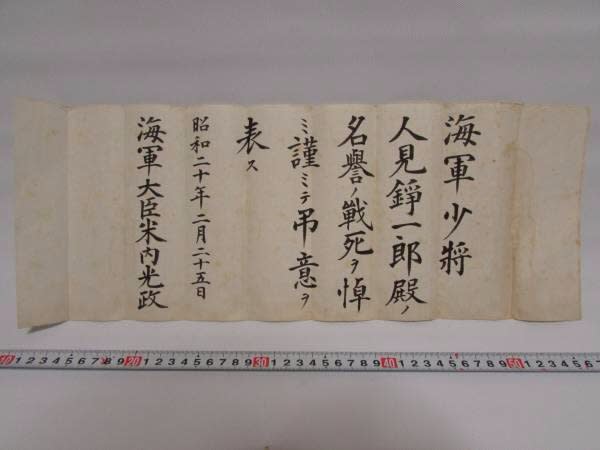 海軍少将
人見錚一郎殿ノ
名譽ノ戰死ヲ悼
ミ謹ミテ弔意ヲ
表ス
昭和二十年二月二十五日
海軍大臣米内光政
10 1 2 3 4 5 6 7 8 9 20 1 2 3 4 5 6 7 8 9 30 1 2 3 4 5 6 7 8 9 40 1 2 3 4 5 6 7 8 9 50 1 2 3 4 5 6